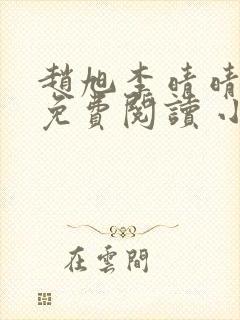 趙旭李晴晴
免費閱讀小
在雲間